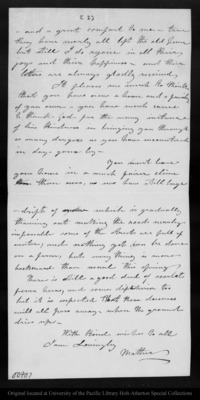 ( 2 )
- and a great comfort to me - true
they have nearly all left the old home
but still I do rejoice in all their
joys and their happiness - and their
letters are always gladly received,
It pleases me much to think
that you have now a home and a family
of your own - you have much cause
to thank God for the many instances
of his kindness in bringing you through
so many dangers as you have encountered
in days gone by -
You must have
your home in a much fairer clime
than ours, as we have still large
- drifts of snow which is gradually
thawing out making the roads nearly
impossible some of the streets are full of
water, and nothing yet can be done
on a farm, but every thing is more
backward than usual this spring
There is still a good deal of
fever here, and some too
but it is expected that these diseases
will all pass away when the ground
dries up -
With kind wishes to all
I am lovingly
Mattie
00907
Original located at University of the Pacific Library Holt-Atherton Special Collections